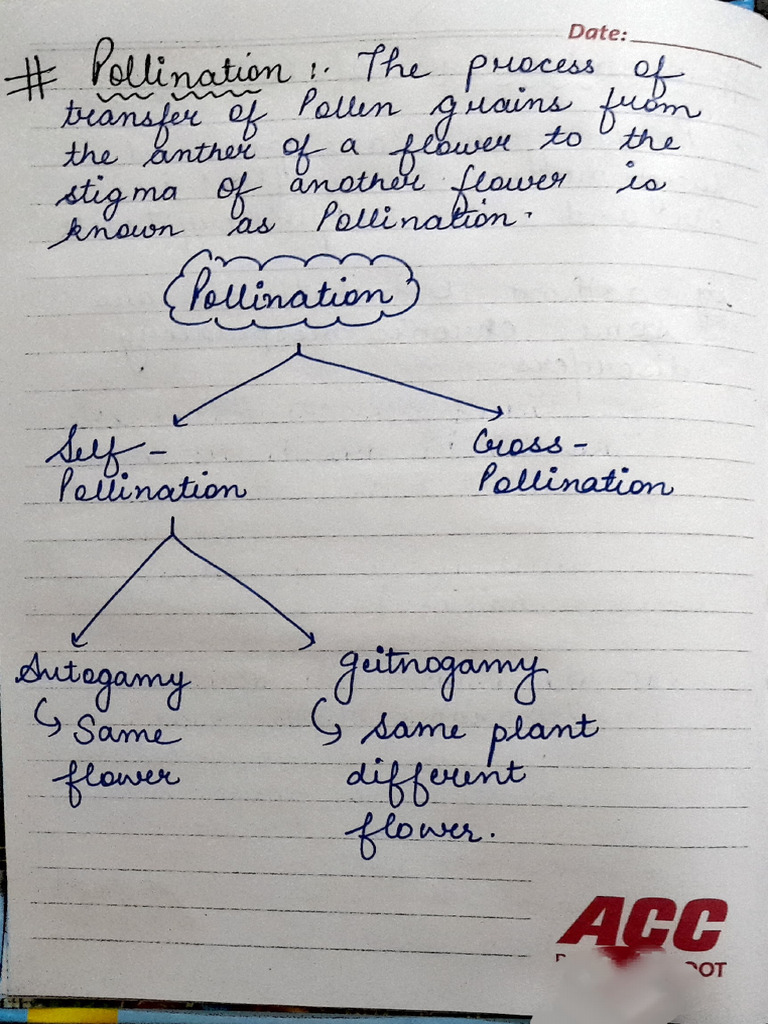 Date:
# Pollination :- The process of
transfer of Pollen grains from
the anther of a flower to the
stigma of another flower is
known as Pollination.
Pollination
Self-
Pollination
Cross-
Pollination
Autogamy
↳ Same
flower
geitnogamy
↳ same plant
different
flower.
ACC